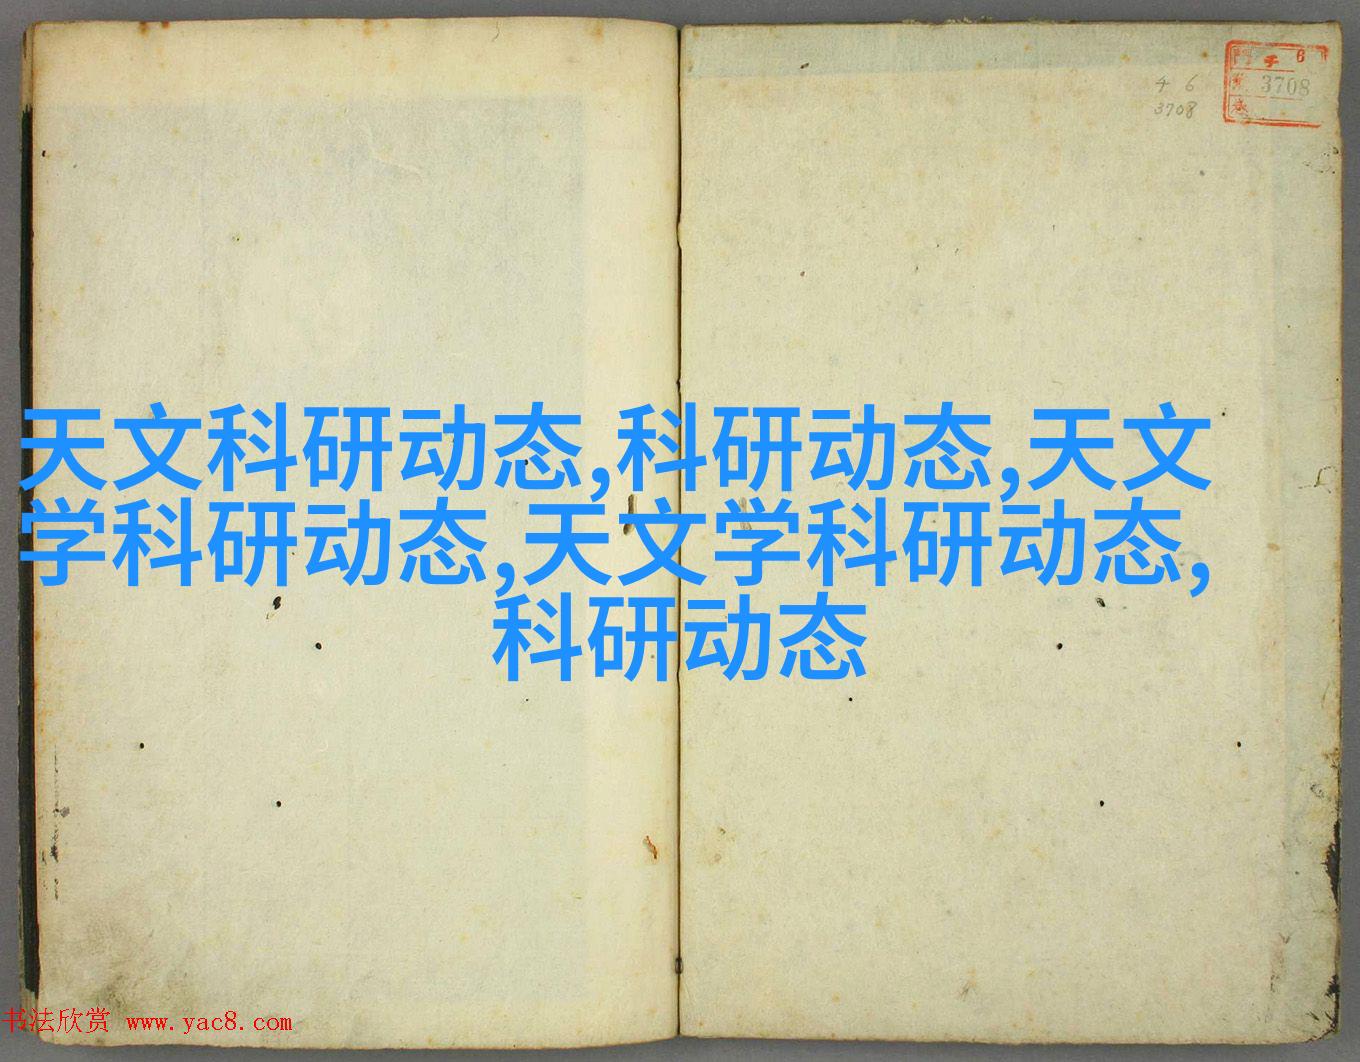 4 6
3708
6
3708
天文科研动态,科研动态,天文
学科研动态,天文学科研动态,
科研动态
书法欣赏 www.yac8.com